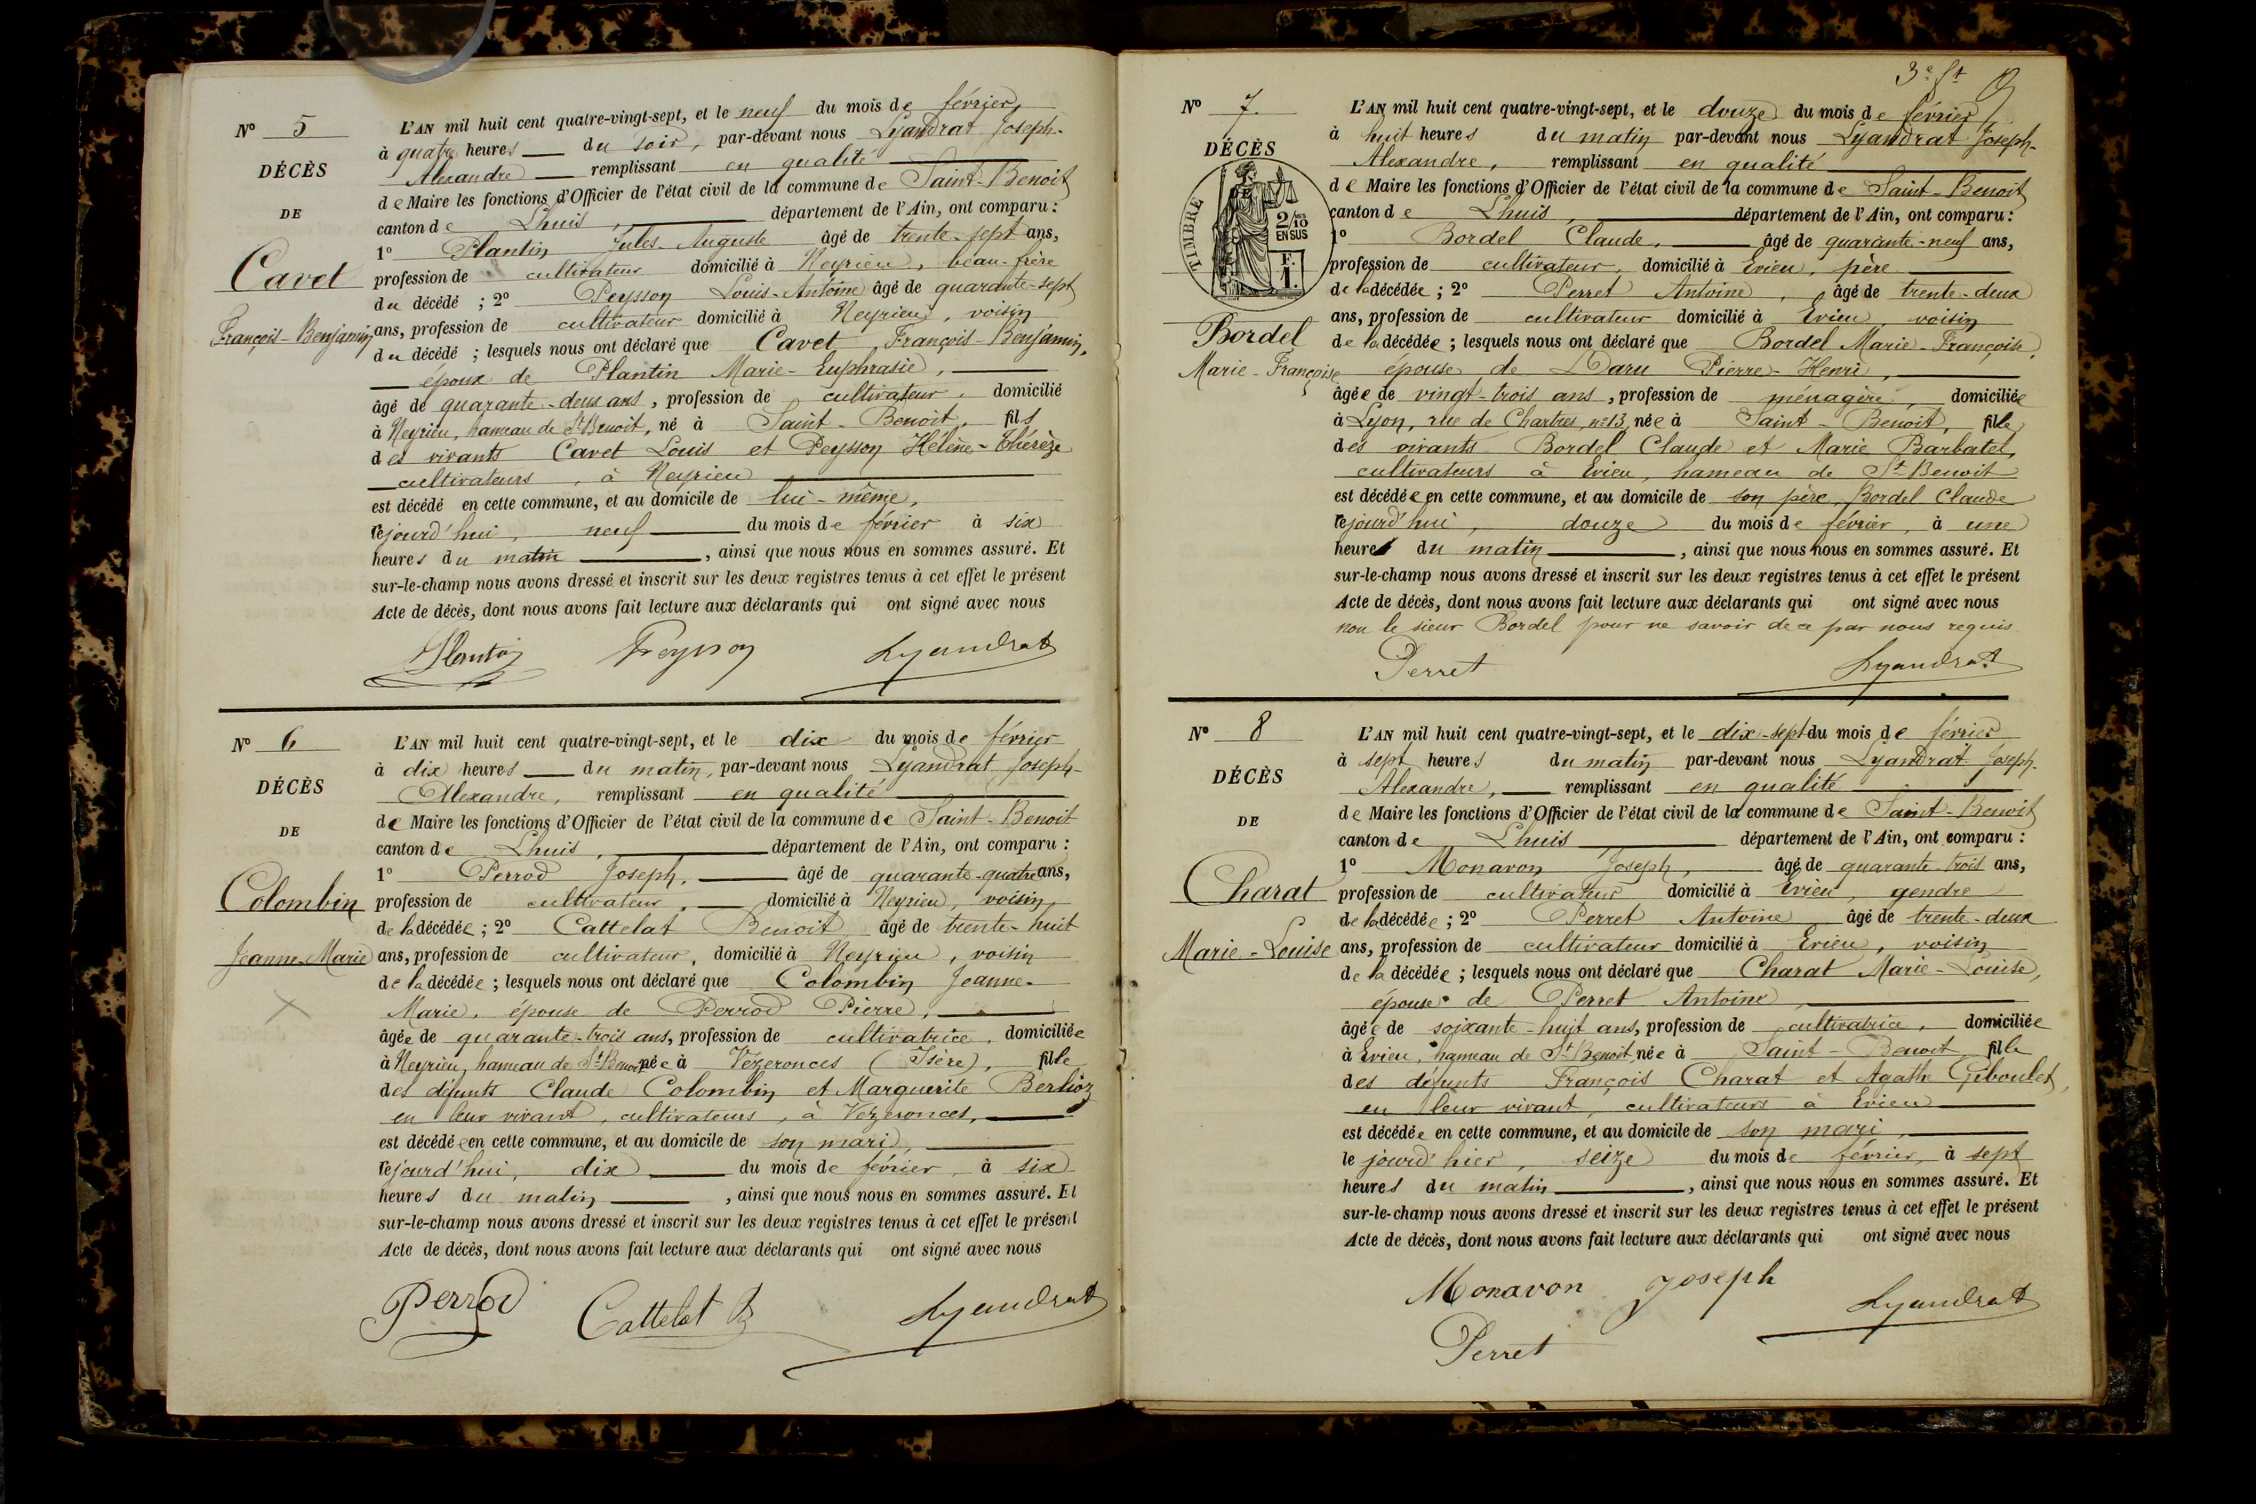 N° 5
DÉCÈS
DE
Cavet
François-Benjamin
L'AN mil huit cent quatre-vingt-sept, et le neuf du mois de février
à quatre heures du soir, par-devant nous Lyandrat Joseph-
Alexandre remplissant en qualité
de Maire les fonctions d'Officier de l'état civil de la commune de Saint-Benoit
canton de Lhuis, département de l'Ain, ont comparu :
1° Plantin Jules-Auguste âgé de trente-sept ans,
profession de cultivateur domicilié à Neyrieu, beau-frère
du décédé ; 2° Peysson Louis-Antoine âgé de quarante-sept
ans, profession de cultivateur domicilié à Neyrieu, voisin
du décédé ; lesquels nous ont déclaré que Cavet, François-Benjamin,
époux de Plantin Marie-Euphrasie,
âgé de quarante-deux ans, profession de cultivateur, domicilié
à Neyrieu, hameau de St Benoit, né à Saint-Benoit, fils
des vivants Cavet Louis et Peysson Hélène-Thérèze
cultivateurs, à Neyrieu
est décédé en cette commune, et au domicile de lui-même,
cejourd'hui, neuf du mois de février à six
heures du matin, ainsi que nous nous en sommes assuré. Et
sur-le-champ nous avons dressé et inscrit sur les deux registres tenus à cet effet le présent
Acte de décès, dont nous avons fait lecture aux déclarants qui ont signé avec nous
Plantin Peysson Lyandrat
N° 6
DÉCÈS
DE
Colombin
Jeanne-Marie
L'AN mil huit cent quatre-vingt-sept, et le dix du mois de février
à dix heures du matin, par-devant nous Lyandrat Joseph-
Alexandre, remplissant en qualité
de Maire les fonctions d'Officier de l'état civil de la commune de Saint-Benoit
canton de Lhuis, département de l'Ain, ont comparu :
1° Perrod Joseph, âgé de quarante-quatre ans,
profession de cultivateur, domicilié à Neyrieu, voisin
de la décédée ; 2° Cattelat Benoit âgé de trente-huit
ans, profession de cultivateur, domicilié à Neyrieu, voisin
de la décédée ; lesquels nous ont déclaré que Colombin Jeanne-
Marie, épouse de Perrod Pierre,
âgée de quarante-trois ans, profession de cultivatrice, domiciliée
à Neyrieu, hameau de St Benoit, née à Vézeronces (Isère), fille
des défunts Claude Colombin et Marguerite Berlioz
en leur vivant, cultivateurs, à Vézeronces,
est décédée en cette commune, et au domicile de son mari,
cejourd'hui, dix du mois de février, à six
heures du matin, ainsi que nous nous en sommes assuré. Et
sur-le-champ nous avons dressé et inscrit sur les deux registres tenus à cet effet le présent
Acte de décès, dont nous avons fait lecture aux déclarants qui ont signé avec nous
Perrod Cattelat B Lyandrat
3e ft
N° 7.
DÉCÈS
TIMBRE
2/10 EN SUS
F. 1.
Bordel
Marie-Françoise
L'AN mil huit cent quatre-vingt-sept, et le douze du mois de février
à huit heures du matin par-devant nous Lyandrat Joseph-
Alexandre, remplissant en qualité
de Maire les fonctions d'Officier de l'état civil de la commune de Saint-Benoit
canton de Lhuis, département de l'Ain, ont comparu :
1° Bordel Claude, âgé de quarante-neuf ans,
profession de cultivateur, domicilié à Evieu, père
de la décédée ; 2° Perret Antoine, âgé de trente-deux
ans, profession de cultivateur domicilié à Evieu, voisin
de la décédée ; lesquels nous ont déclaré que Bordel Marie-Françoise,
épouse de Daru Pierre-Henri,
âgée de vingt-trois ans, profession de ménagère, domiciliée
à Lyon, rue de Chartres, n° 13, née à Saint-Benoit, fille
des vivants Bordel Claude et Marie Barbatel,
cultivateurs à Evieu, hameau de St Benoit
est décédée en cette commune, et au domicile de son père, Bordel Claude
cejourd'hui, douze du mois de février, à une
heure du matin, ainsi que nous nous en sommes assuré. Et
sur-le-champ nous avons dressé et inscrit sur les deux registres tenus à cet effet le présent
Acte de décès, dont nous avons fait lecture aux déclarants qui ont signé avec nous
non le sieur Bordel pour ne savoir de ce par nous requis.
Perret Lyandrat
N° 8
DÉCÈS
DE
Charat
Marie-Louise
L'AN mil huit cent quatre-vingt-sept, et le dix-sept du mois de février
à sept heures du matin par-devant nous Lyandrat Joseph-
Alexandre, remplissant en qualité
de Maire les fonctions d'Officier de l'état civil de la commune de Saint-Benoit
canton de Lhuis département de l'Ain, ont comparu :
1° Monavon Joseph, âgé de quarante-trois ans,
profession de cultivateur domicilié à Evieu, gendre
de la décédée ; 2° Perret Antoine âgé de trente-deux
ans, profession de cultivateur domicilié à Evieu, voisin
de la décédée ; lesquels nous ont déclaré que Charat Marie-Louise,
épouse de Perret Antoine,
âgée de soixante-huit ans, profession de cultivatrice, domiciliée
à Evieu, hameau de St Benoit, née à Saint-Benoit fille
des défunts François Charat et Agathe Giboulet,
en leur vivant, cultivateurs à Evieu
est décédée en cette commune, et au domicile de son mari,
le jourd'hier, seize du mois de février, à sept
heures du matin, ainsi que nous nous en sommes assuré. Et
sur-le-champ nous avons dressé et inscrit sur les deux registres tenus à cet effet le présent
Acte de décès, dont nous avons fait lecture aux déclarants qui ont signé avec nous
Monavon Joseph Lyandrat
Perret